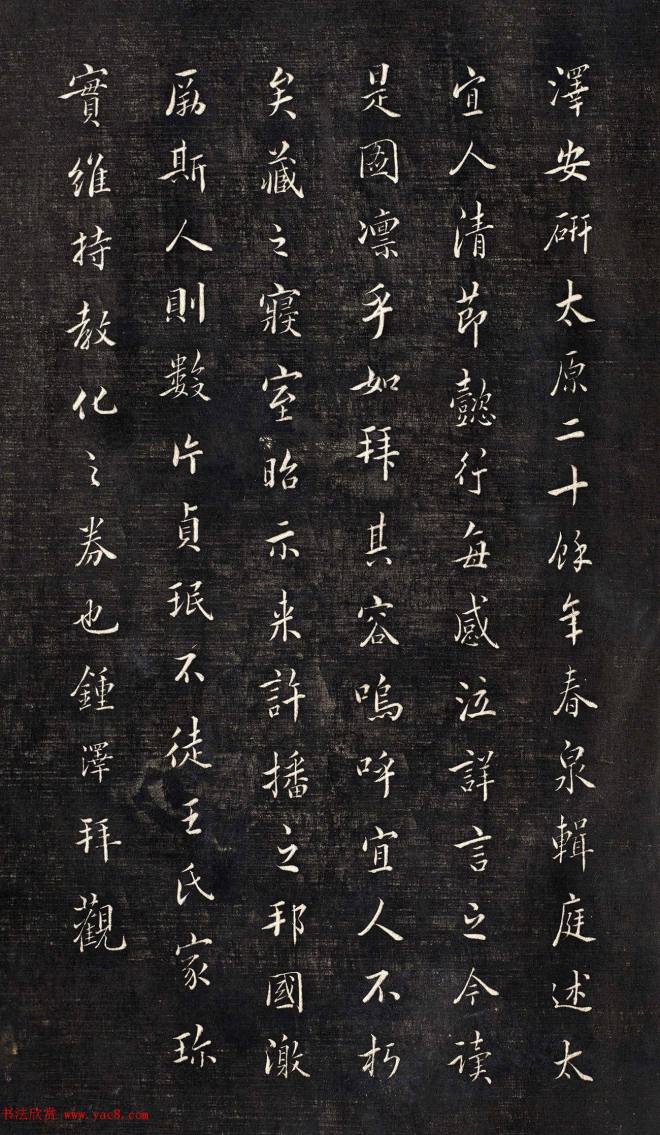 澤安研太原二十餘年春泉輯庭述太
宜人清節懿行每感泣詳言之今读
是圖凛乎如拜其容嗚呼宜人不朽
矣藏之寢室昭示来許播之邦國激
厲斯人則數片貞珉不徒王氏家珎
實維持教化之券也鍾澤拜觀
书法欣赏 www.yac8.com